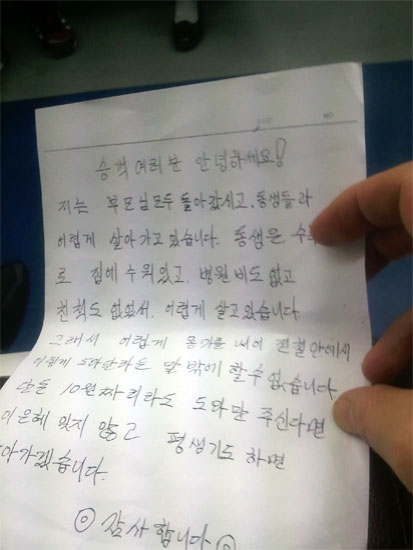 NO
승객여러분 안녕하세요!
저는 부모님모두 돌아가시고, 동생들과
어렵게 살아가고있습니다. 동생은
로 집에 누워있고, 병원비도 없고
친척도 없어서. 어렵게 살고있습니다
그래서 어렵게 용기를 내어 전철안에서
이렇게 도와달라는 말 밖에 할수 없습니다
단돈 10원짜리라도 도와만 주신다면
이은혜 잊지 않고 평생기도 하면
아가겠습니다.
◎ 감사합니다 ◎